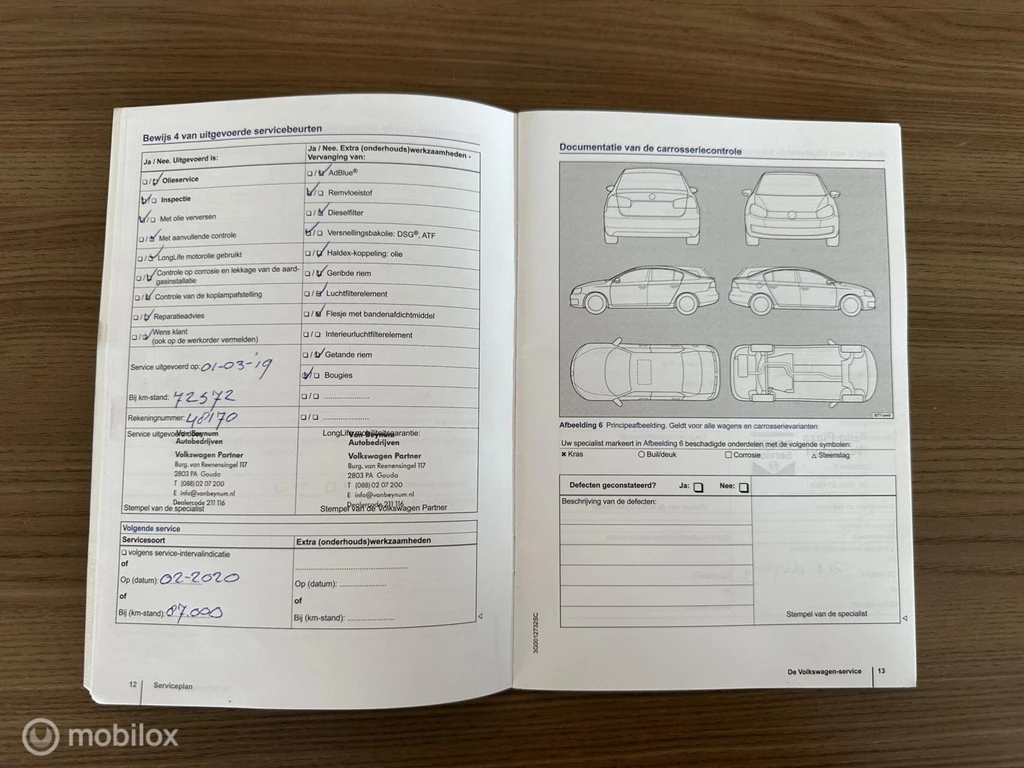 Bewijs 4 van uitgevoerde servicebeurten
Ja / Nee. Uitgevoerd is:
Olieservice
Inspectie
Met olie verversen
Met aanvullende controle
LongLife motorolie gebruikt
Controle op corrosie en lekkage van de aard-
gasinstallatie
Controle van de koplampafstelling
Reparatieadvies
Wens klant
(ook op de werkorder vermelden)
Service uitgevoerd op: 01-03-'19
Bij km-stand: 72572
Rekeningnummer: 48170
Service uitgevoerd door:
Van Beynum
Autobedrijven
Volkswagen Partner
Burg. van Reenensingel 117
2803 PA Gouda
T (088) 02 07 200
E info@vanbeynum.nl
Dealercode 211 116
Stempel van de specialist
Ja / Nee. Extra (onderhouds)werkzaamheden -
Vervanging van:
AdBlue®
Remvloeistof
Dieselfilter
Versnellingsbakolie: DSG®, ATF
Haldex-koppeling: olie
Geribde riem
Luchtfilterelement
Flesje met bandenafdichtmiddel
Interieurluchtfilterelement
Getande riem
Bougies
LongLife mobiliteitsgarantie:
Van Beynum
Autobedrijven
Volkswagen Partner
Burg. van Reenensingel 117
2803 PA Gouda
T (088) 02 07 200
E info@vanbeynum.nl
Dealercode 211 116
Stempel van de Volkswagen Partner
Volgende service
Servicesoort
volgens service-intervalindicatie
of
Op (datum): 02-2020
of
Bij (km-stand): 87.000
Extra (onderhouds)werkzaamheden
Op (datum):
of
Bij (km-stand):
12 Serviceplan
Documentatie van de carrosseriecontrole
Afbeelding 6 Principeafbeelding. Geldt voor alle wagens en carrosserievarianten
Uw specialist markeert in Afbeelding 6 beschadigde onderdelen met de volgende symbolen:
Kras Buil/deuk Corrosie Steenslag
Defecten geconstateerd? Ja: Nee:
Beschrijving van de defecten:
Stempel van de specialist
3G0012732SC
De Volkswagen-service 13
mobilox